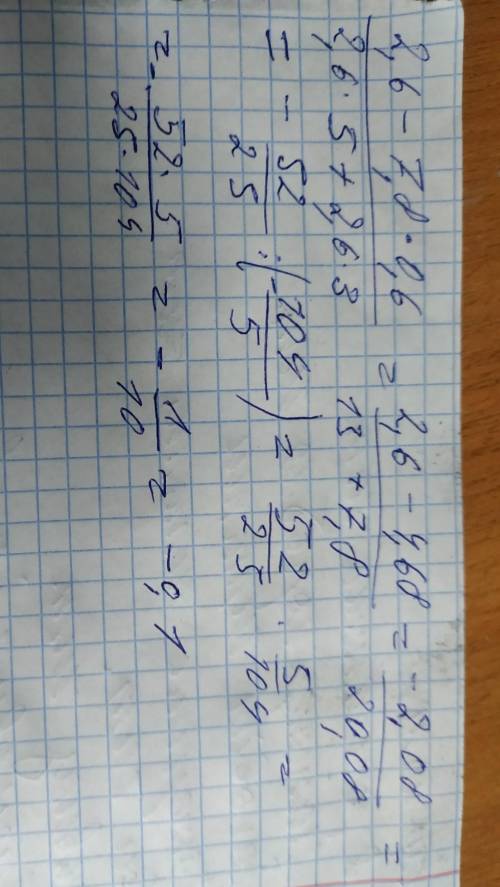 2,6 - 7,8 · 0,6 / 2,6 · 5 + 2,6 · 3 = 2,6 - 4,68 / 13 + 7,8 = -2,08 / 20,08 =
= - 52/25 : (- 104/5) = 52/25 · 5/104 =
= - 52 · 5 / 25 · 104 = - 1/10 = - 0,1